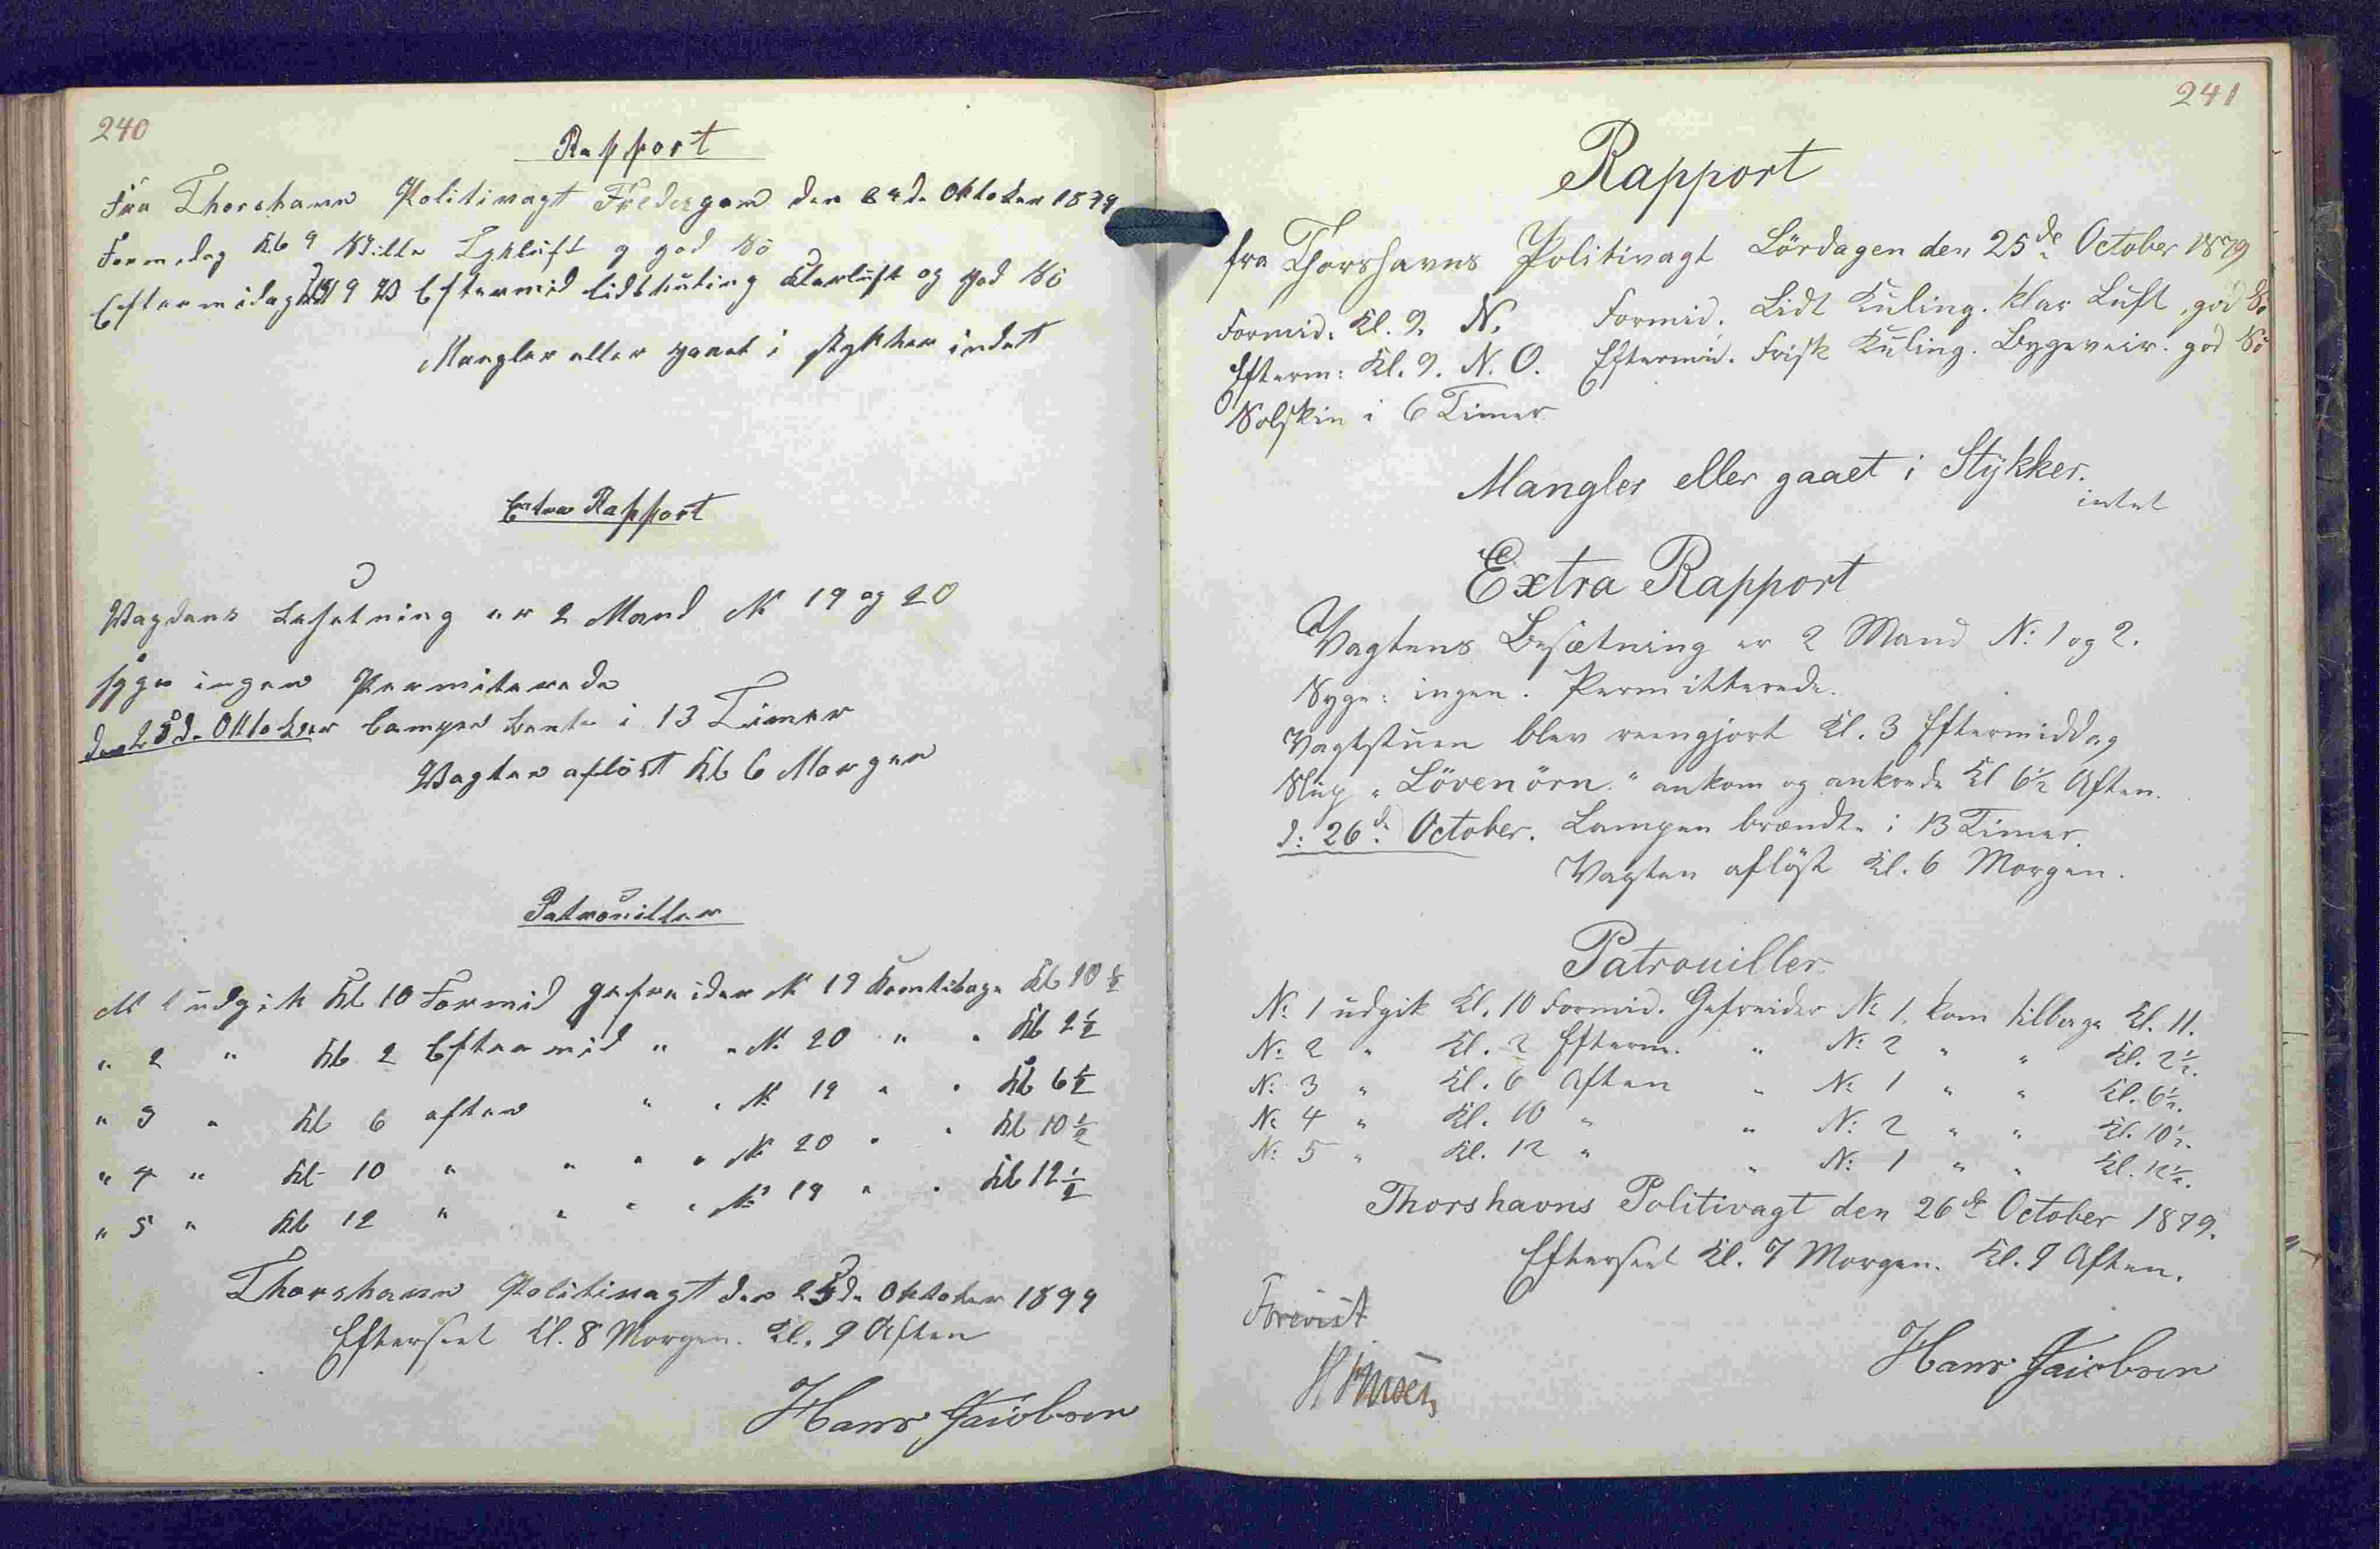 240
Rapport
Fra Thorshavn Politivagt Fredegom den 24de Oktober 1879
Formidag Kl 9 Stille Tykluft og god Sö
Eftermidag Kl 9 V Eftermid lidtkuling Klarluft og god Sö
Mangler eller gaaet i stykker indet
Extra Rapport
Vagdens Besetning er 2 Mand № 19 og 20
syge ingen Permiterede
den 25de Oktober Lampen bente i 13 Timer
Vagten aflöst Kl 6 Morgen
Patrouiller
№ 1 udgik Kl 10 Formid gefreider № 19 komtibage Kl 10½
" 2 " Kl 2 Eftermid " " № 20 " " Kl 2½
" 3 " Kl 6 aften " " № 19 " " Kl 6½
" 4 " Kl 10 " " " " № 20 " " Kl 10½
" 5 " Kl 12 " " " " № 19 " " Kl 12½
Thorshavn Politivagt den 25de Oktober 1899
Efterseet Kl. 8 Morgen. Kl. 9 Aften
Hans Jacobsen
241
Rapport
fra Thorshavns Politivagt Lördagen den 25de October 1879
Formid. Kl. 9. N. Formid. Lidt Kuling. klar Luft, god Sö
Efterm: Kl. 9. N. O. Eftermid. Frisk Kuling. Bygeveir. god Sö
Solskin i 6 Timer
Mangler eller gaaet i Stykker.
intet
Extra Rapport
Vagtens Besætning er 2 Mand N: 1 og 2.
Syge: ingen. Permitterede.
Vagtstuen blev reengjort Kl. 3 Eftermiddag
Slup "Lövenörn" ankom og ankrede Kl 6½ Aften.
d: 26de October. Lampen brændte i 13 Timer.
Vagten aflöst Kl. 6 Morgen.
Patrouiller
N: 1 udgik Kl. 10 Formid. Gefreider N: 1. kom tilbage Kl. 11.
N: 2 " Kl. 2 Efterm. " N: 2 " " Kl. 2½.
N: 3 " Kl. 6 Aften " N: 1 " " Kl. 6½.
N: 4 " Kl. 10 " " N: 2 " " Kl. 10½.
N: 5 " Kl. 12 " " N: 1 " " Kl. 12½.
Thorshavns Politivagt den 26de October 1879.
Efterseet Kl. 7 Morgen. Kl. 9 Aften.
Forevist
Hans Jacobsen